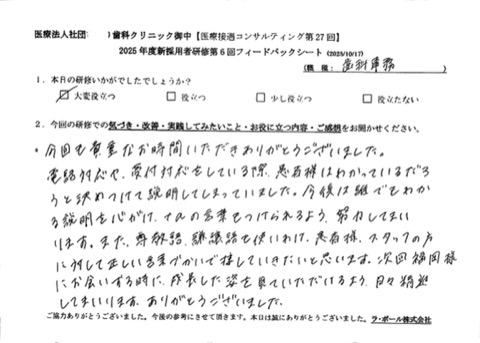 医療法人社団　　　）歯科クリニック御中【医療接遇コンサルティング第27回】
2025年度新採用者研修第6回フィードバックシート（2025/10/17）
（職種：歯科事務）
1．本日の研修いかがでしたでしょうか？
☑大変役立つ　□役立つ　□少し役立つ　□役立たない
2．今回の研修での気づき・改善・実践してみたいこと・お役に立つ内容・ご感想をお聞かせください。
・今回も貴重なお時間いただきありがとうございました。
電話対応や、受付対応をしている際、患者様はわかっているだろ
うと決めつけて説明してしまっていました。今後は誰でもわか
る説明を心がけ、+αの言葉をつけられるよう、努力してまい
ります。また、尊敬語、謙譲語を使いわけ、患者様、スタッフの方
に対して正しい言葉づかいで接していきたいと思います。次回福岡様
にお会いする時に、成長した姿を見ていただけるよう、日々精進
してまいります。ありがとうございました。
ご協力ありがとうございました。今後の参考にさせて頂きます。本日は誠にありがとうございました。ラ・ポール株式会社